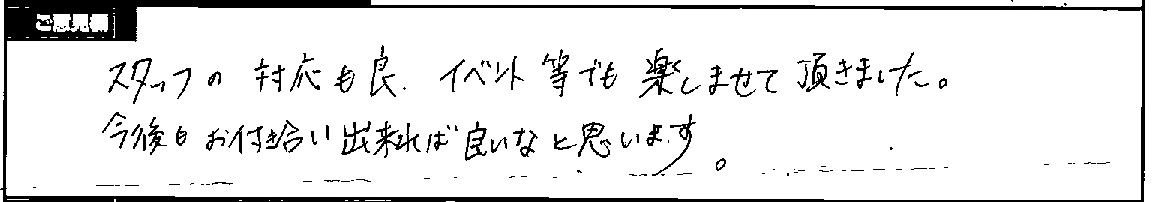 ご意見欄
スタッフの対応も良、イベント等でも楽しませて頂きました。
今後もお付き合い出来れば良いなと思います。